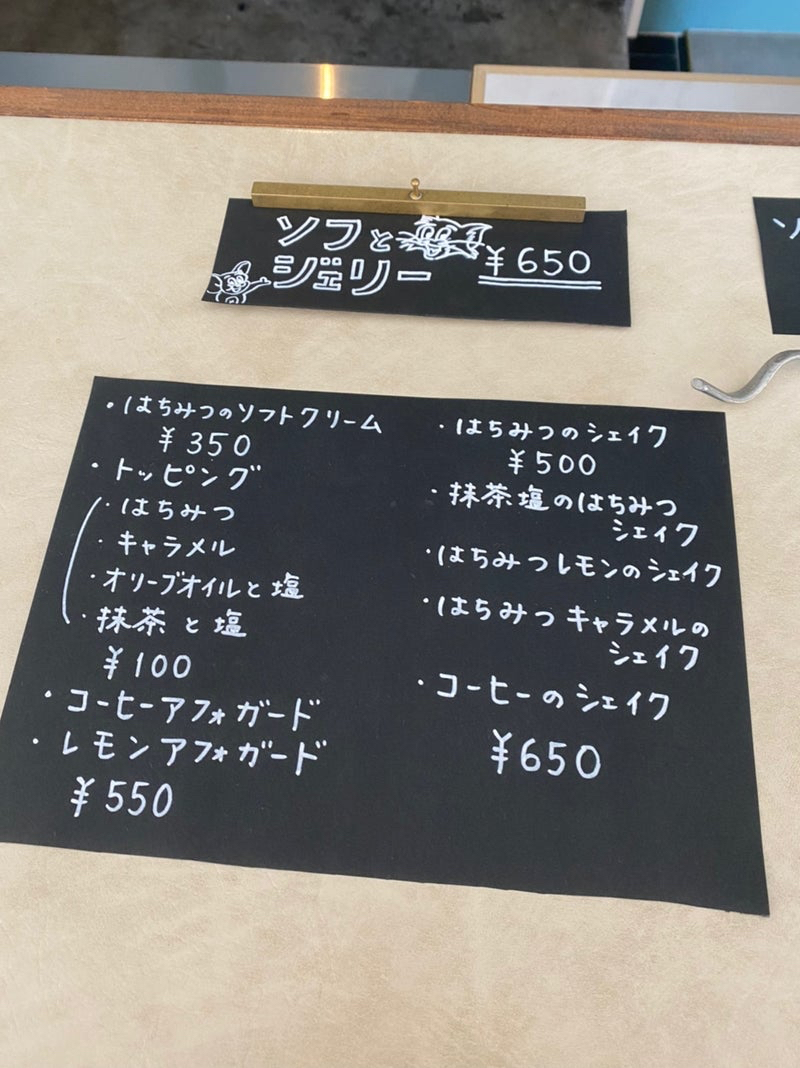 ソフと
ジェリー
¥650
・はちみつのソフトクリーム
¥350
・トッピング
・はちみつ
・キャラメル
・オリーブオイルと塩
・抹茶と塩
¥100
・コーヒーアフォガード
・レモンアフォガード
¥550
・はちみつのシェイク
¥500
・抹茶塩のはちみつ
シェイク
・はちみつレモンのシェイク
・はちみつキャラメルの
シェイク
・コーヒーのシェイク
¥650